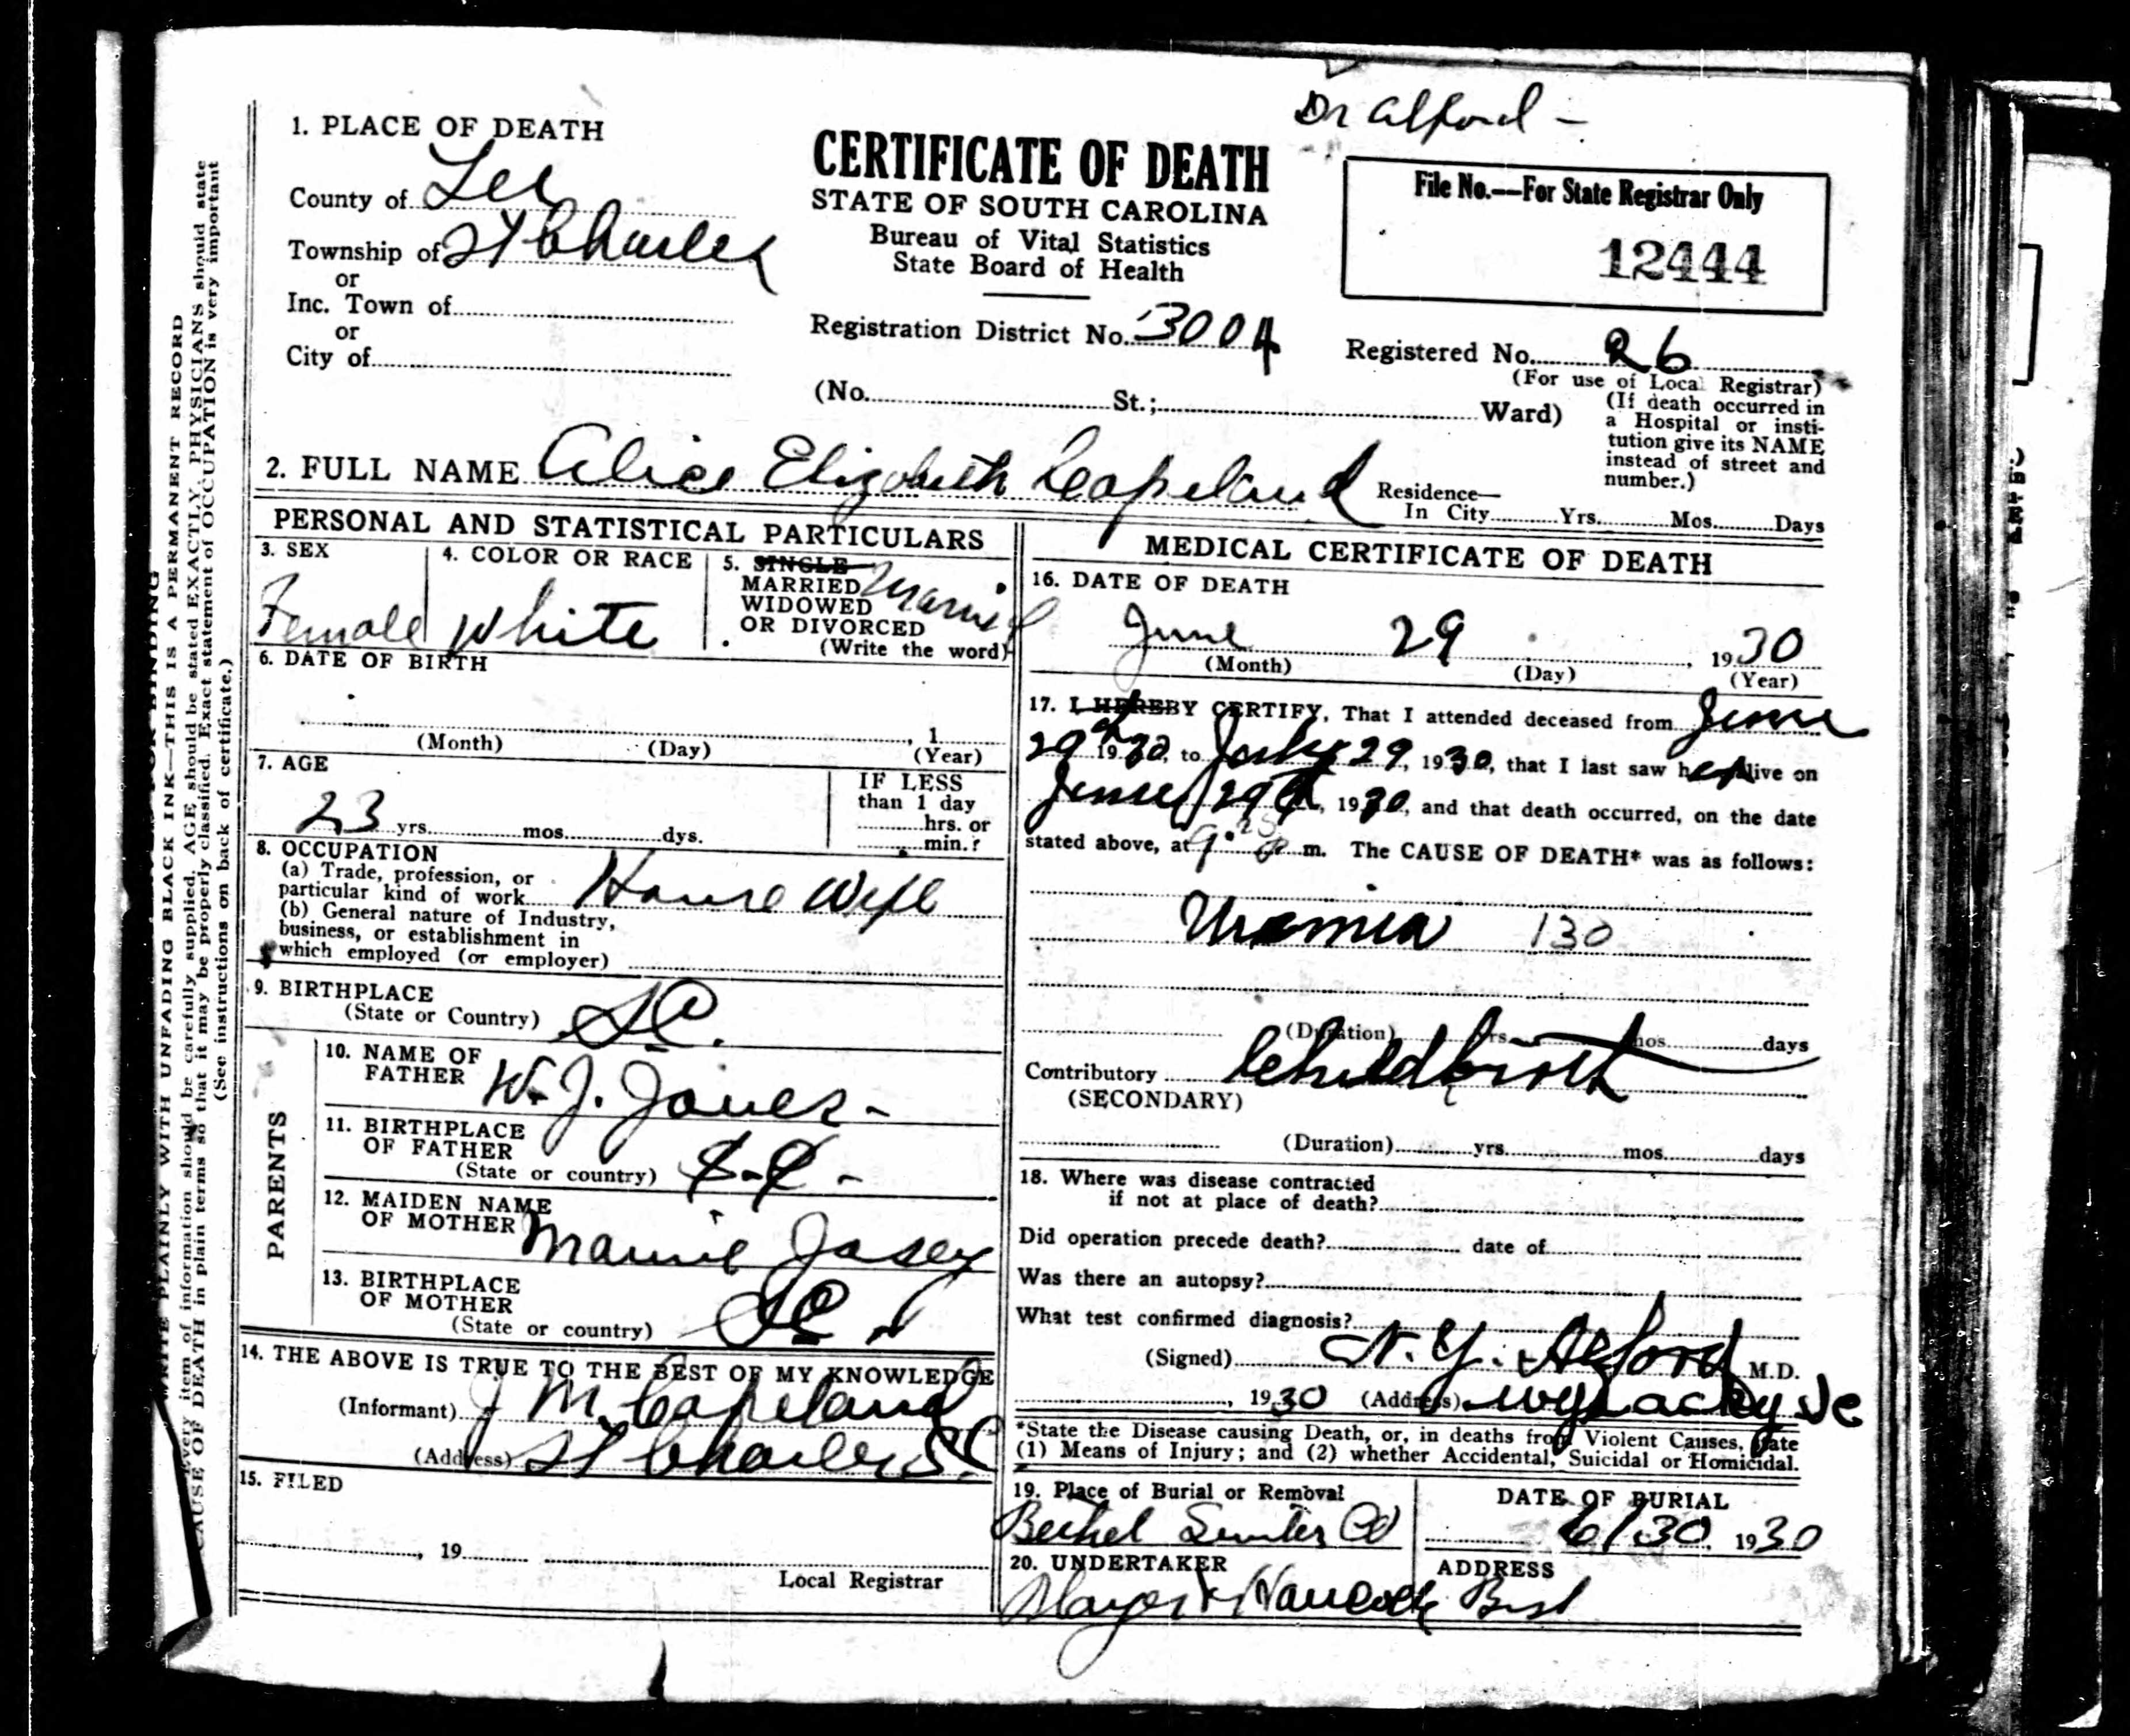 Dr Alford -
1. PLACE OF DEATH
County of Lee
Township of St Charles
or
Inc. Town of
or
City of
CERTIFICATE OF DEATH
STATE OF SOUTH CAROLINA
Bureau of Vital Statistics
State Board of Health
Registration District No. 3004
File No.—For State Registrar Only
12444
Registered No. 26
(For use of Local Registrar)
(No. St.; Ward)
(If death occurred in
a Hospital or insti-
tution give its NAME
instead of street and
number.)
2. FULL NAME Alice Elizabeth Copeland
Residence—
In City Yrs. Mos. Days
PERSONAL AND STATISTICAL PARTICULARS
3. SEX
Female
4. COLOR OR RACE
White
5. SINGLE
MARRIED Married
WIDOWED
OR DIVORCED
(Write the word)
6. DATE OF BIRTH
, 1
(Month) (Day) (Year)
7. AGE
23 yrs. mos. dys.
IF LESS
than 1 day
hrs. or
min.?
8. OCCUPATION
(a) Trade, profession, or
particular kind of work House Wife
(b) General nature of Industry,
business, or establishment in
which employed (or employer)
9. BIRTHPLACE
(State or Country) SC.
PARENTS
10. NAME OF
FATHER W. J. Jones -
11. BIRTHPLACE
OF FATHER
(State or country) S.C -
12. MAIDEN NAME
OF MOTHER Mamie Josey
13. BIRTHPLACE
OF MOTHER
(State or country) SC
14. THE ABOVE IS TRUE TO THE BEST OF MY KNOWLEDGE
(Informant) J M. Copeland
(Address) St Charles S.C
15. FILED
, 19
Local Registrar
MEDICAL CERTIFICATE OF DEATH
16. DATE OF DEATH
June 29 , 1930
(Month) (Day) (Year)
17. I HEREBY CERTIFY, That I attended deceased from June
29th 1930, to July 29, 1930, that I last saw her alive on
June 29th, 1930, and that death occurred, on the date
stated above, at 9. m. The CAUSE OF DEATH* was as follows:
Uremia 130
(Duration) yrs. mos. days
Contributory Childbirth
(SECONDARY)
(Duration) yrs. mos. days
18. Where was disease contracted
if not at place of death?
Did operation precede death? date of
Was there an autopsy?
What test confirmed diagnosis?
(Signed) N. Y. Alford M.D.
, 1930 (Address) Wysacky Sc
*State the Disease causing Death, or, in deaths from Violent Causes, state
(1) Means of Injury; and (2) whether Accidental, Suicidal or Homicidal.
19. Place of Burial or Removal
Bethel Sumter Co
DATE OF BURIAL
6/30 1930
20. UNDERTAKER
Hancock
ADDRESS
WRITE PLAINLY WITH UNFADING BLACK INK—THIS IS A PERMANENT RECORD
every item of information should be carefully supplied. AGE should be stated EXACTLY. PHYSICIANS should state
CAUSE OF DEATH in plain terms so that it may be properly classified. Exact statement of OCCUPATION is very important
(See instructions on back of certificate.)